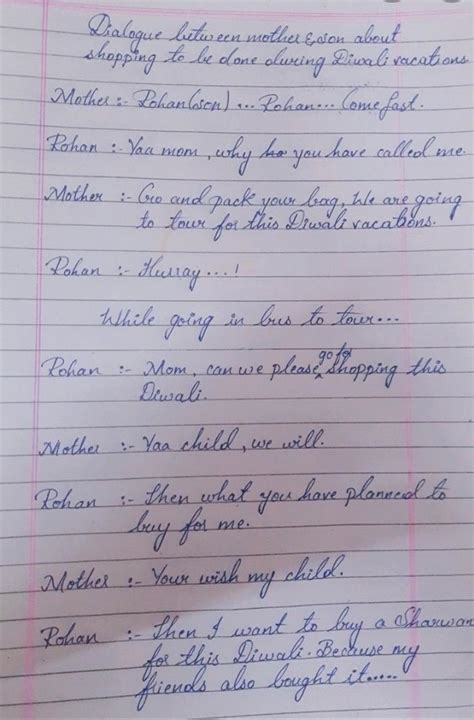 Dialogue between mother & son about
shopping to be done during Diwali vacations.
Mother :- Rohan(son) ... Rohan... Come fast.
Rohan :- Yaa mom, why you have called me.
Mother :- Go and pack your bag, We are going
to tour for this Diwali vacations.
Rohan :- Hurray...!
While going in bus to tour...
Rohan :- Mom, can we please go for shopping this
Diwali.
Mother :- Yaa child, we will.
Rohan :- Then what you have planned to
buy for me.
Mother :- Your wish my child.
Rohan :- Then I want to buy a Sharwan
for this Diwali. Because my
friends also bought it.....